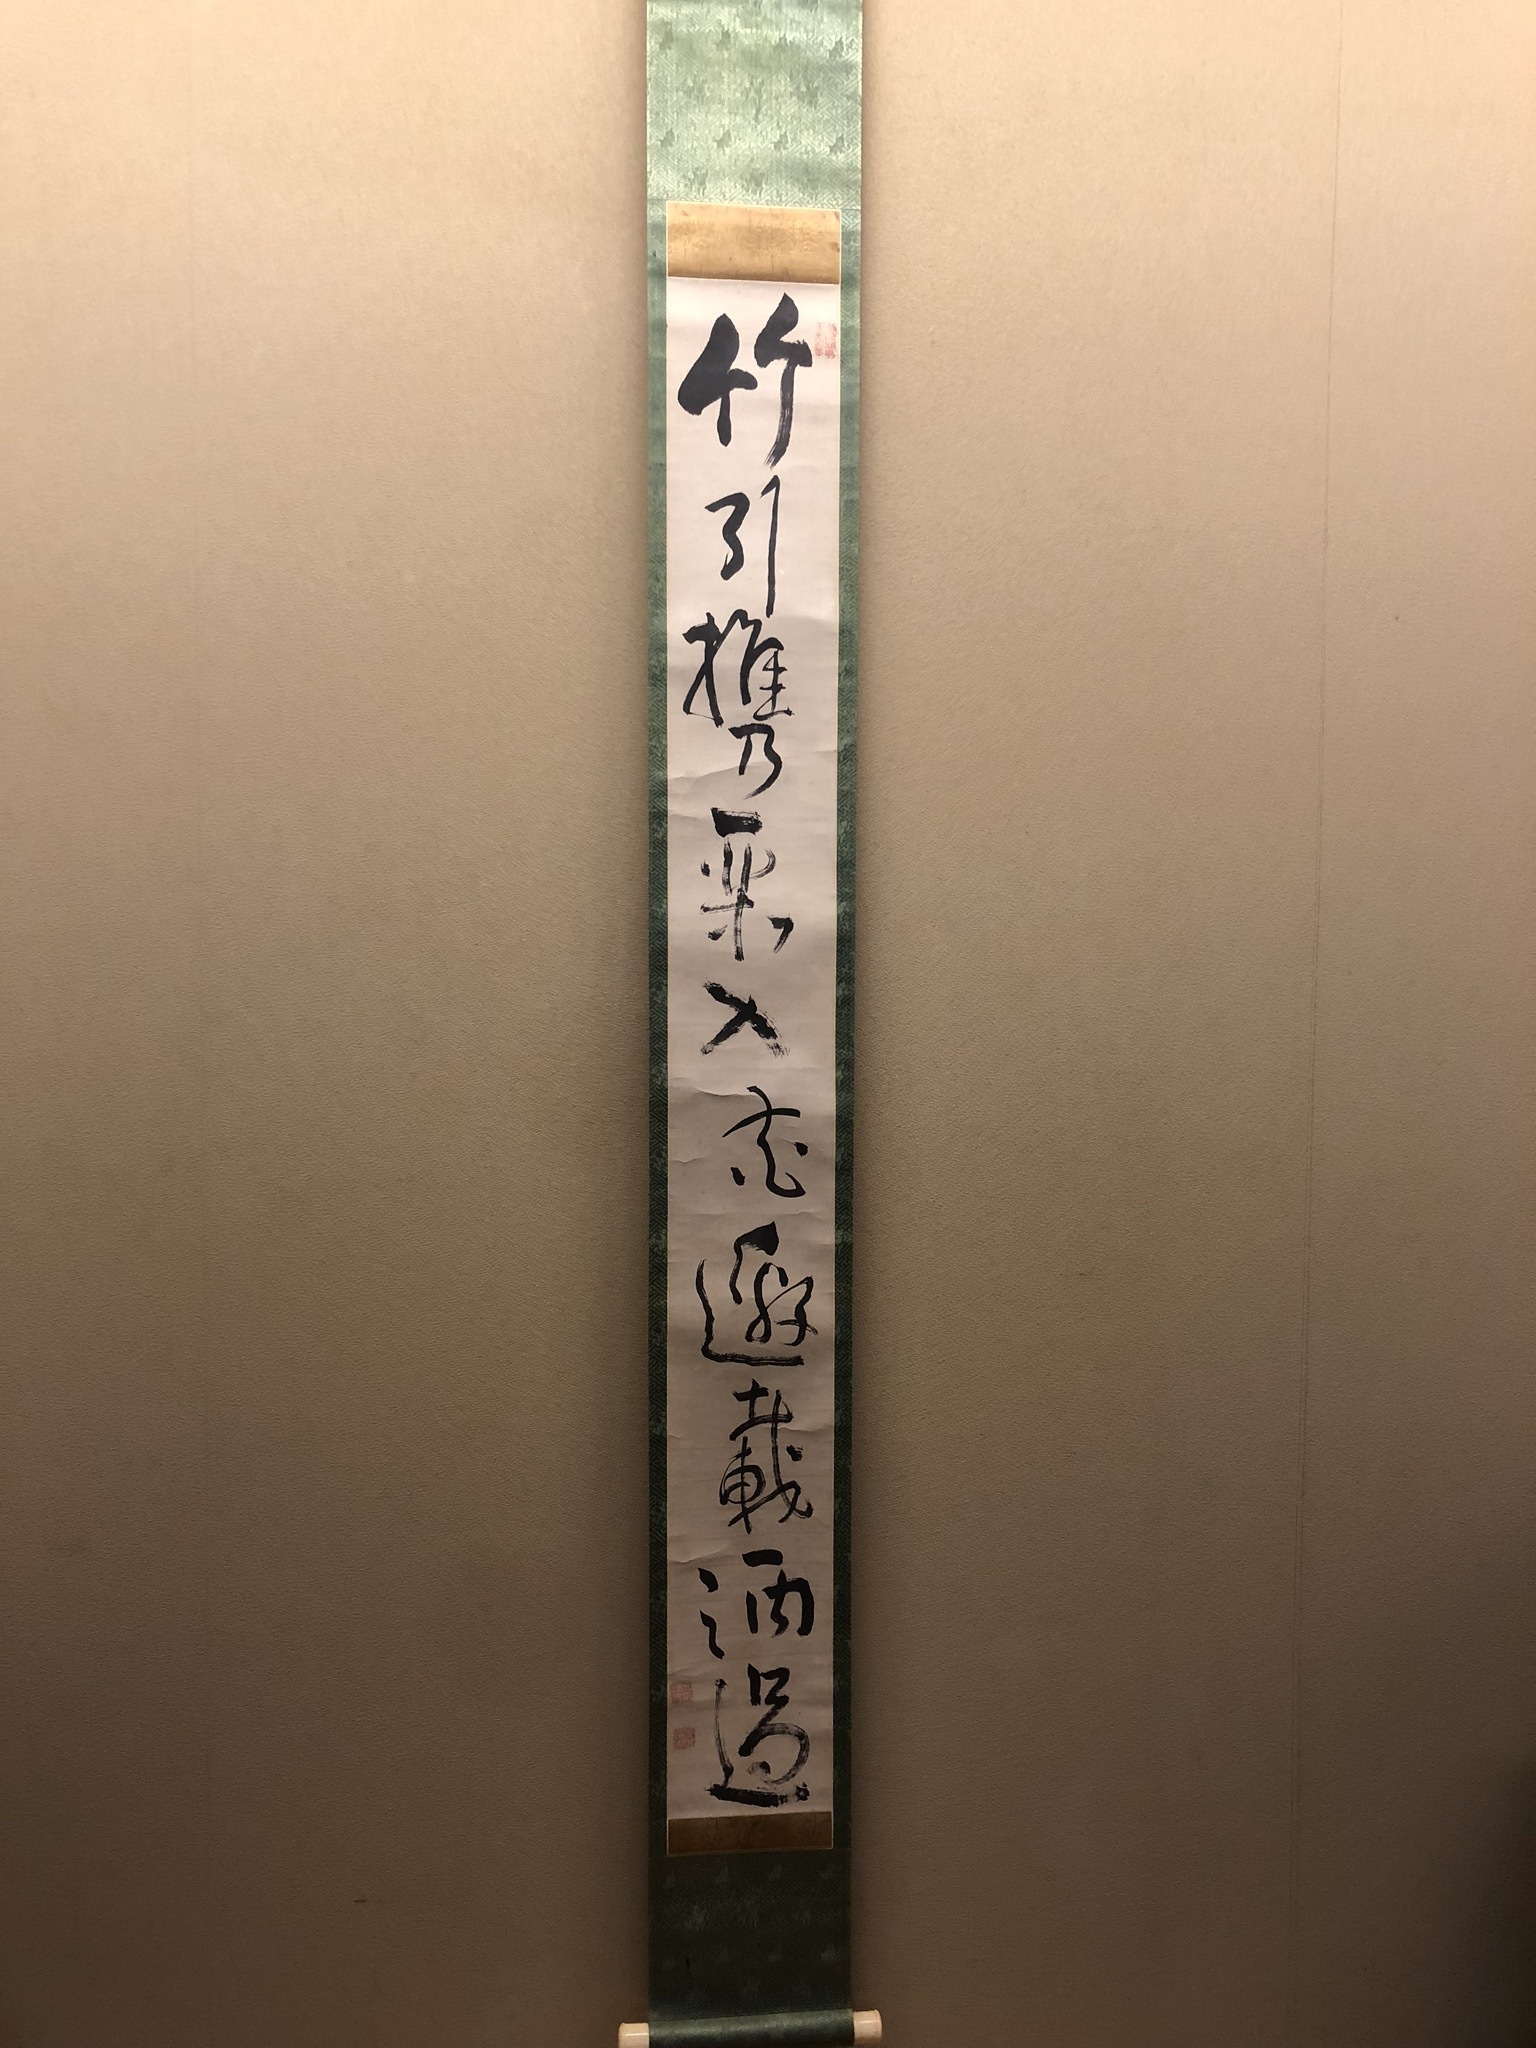 竹引携琴入花邀載酒過